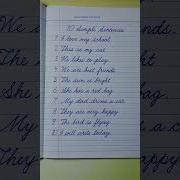 10 simple sentences
1. I love my school.
2. This is my cat.
3. We like to play.
4. We are best friends.
5. The sun is bright
6. She has a red bag.
7. My dad drives a car.
8. They are very happy
9. The bird is flying.
10. I will write today.